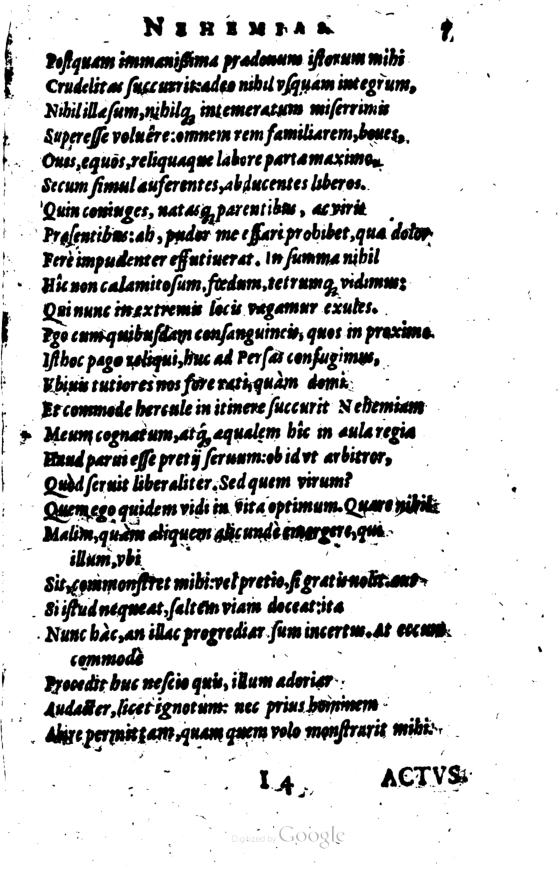 NEHEMIAS.
Postquam immanißima prædonum istorum mihi
Crudelitas succurrit: adeo nihil vsquam integrum,
Nihil illæsum, nihilq; intemeratum miserrimis
Superesse voluêre: omnem rem familiarem, boues,
Oues, equos, reliquaque labore parta maximo,
Secum simul auferentes, abducentes liberos.
Quin coniuges, natasq; parentibus, ac viris
Præsentibus: ah, pudor me effari prohibet, quæ dolor
Ferè impudenter effutiuerat. In summa nihil
Hic non calamitosum, fœdum, tetrumq; vidimus:
Qui nunc in extremis locis vagamur exules.
Ego cum quibusdam consanguineis, quos in proximo
Isthoc pago reliqui, huc ad Persas confugimus,
Vbiuis tutiores nos fore rati, quàm domi.
Et commode hercule in itinere succurit Nehemiam
Meum cognatum, atq; æqualem hîc in aula regia
Haud parui esse pretij seruum: ob id vt arbitror,
Quòd seruit liberaliter. Sed quem virum?
Quem ego quidem vidi in vita optimum. Quare nihil
Malim, quàm aliquem alicundè emergere, qui
illum, vbi
Sit, commonstret mihi: vel pretio, si gratis nolit: aut
Si istud nequeat, saltem viam doceat: ita
Nunc hàc, an illac progrediar sum incertus. At eccum
commodè
Procedit huc nescio quis, illum adoriar
Audacter, licet ignotum: nec prius hominem
Abire permittam, quam quem volo monstrarit mihi.
I 4 ACTVS
Digitized by Google